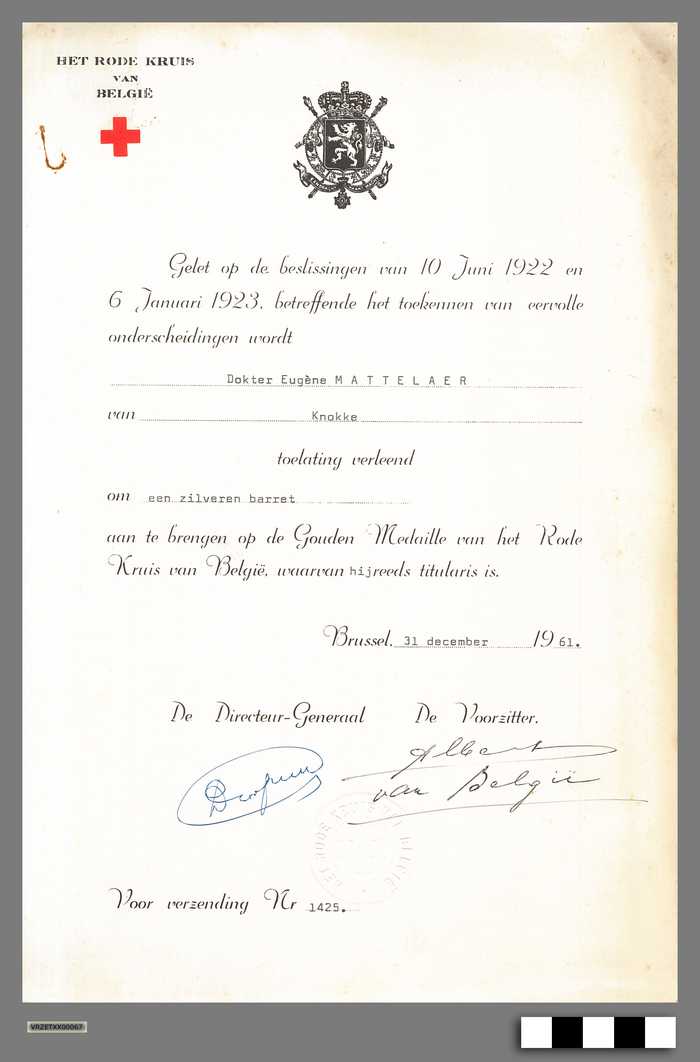 HET RODE KRUIS
VAN
BELGIË
Gelet op de beslissingen van 10 Juni 1922 en
6 Januari 1923, betreffende het toekennen van eervolle
onderscheidingen wordt
Dokter Eugène M A T T E L A E R
van Knokke
toelating verleend
om een zilveren barret
aan te brengen op de Gouden Medaille van het Rode
Kruis van België, waarvan hij reeds titularis is.
Brussel, 31 december 19 61.
De Directeur-Generaal De Voorzitter,
Albert
van België
Voor verzending Nr 1425.
VRZETXX00067